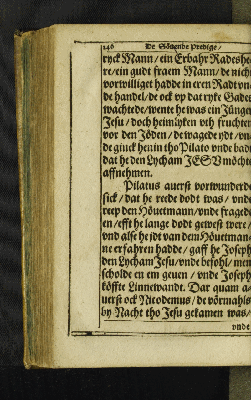 146 De Sövende Predige /
ryck Mann / ein Erbahr Radeshe-
re / ein gudt fraem Mann / de nicht
vorwilliget hadde in eren Radt vn̄
de handel / de ock vp dat ryke Gades
wachtede / wente he was ein Jünger
Jesu / doch heimlyken vth fruchten
vor den Jöden / de wagede ydt / vn̄
de ginck henin tho Pilato vnde badt
dat he den Lycham JESV möchte
affnehmen.
Pilatus auerst vorwunderde
sick / dat he rede dodt was / vnde
reep den Höuetmann / vnde fragede
en / efft he lange dodt gewest were /
vnd alse he jdt van dem Höuetman-
ne erfahren hadde / gaff he Joseph
den Lycham Jesu / vnde befohl / men
scholde en em geuen / vnde Joseph
köffte Linnewandt. Dar quam a-
uerst ock Nicodemus / de vörmahls
by Nacht tho Jesu gekamen was /
vnde